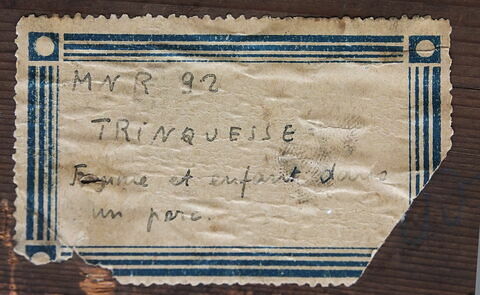 MNR 92
TRINQUESSE
Femme et enfant dans
un parc.